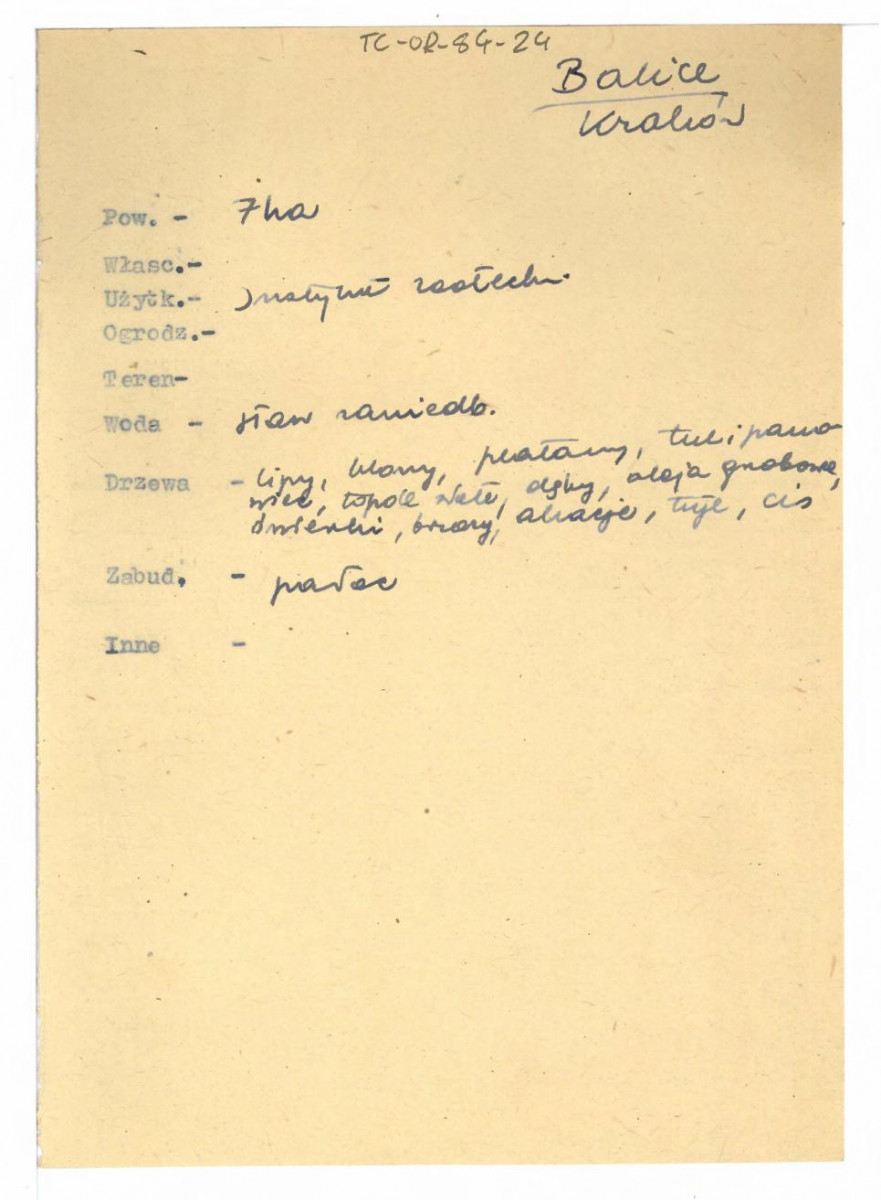 TC-OR-84-24
Balice
Kraków
Pow. - 7ha
Własc.-
Użytk.- Instytut zootechn.
Ogrodz.-
Teren-
Woda - staw zaniedb.
Drzewa - lipy, klony, platany, tulipano
wiec, topole białe, dęby, aleja grabowa,
świerki, brzozy, akacje, tuje, cis
Zabud. - pałac
Inne -